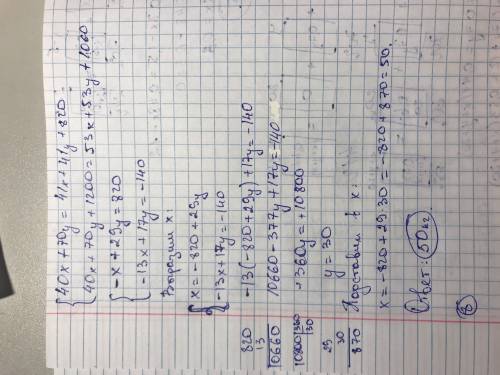 {40x+70y=41x+41y+820
{40x+70y+1200=53x+53y+1060
{-x+29y=820
{-13x+17y=-140
Выразим x:
{x=-820+29y
{-13x+17y=-140
-13(-820+29y)+17y=-140
10660-377y+17y=-140
+360y=+10800
y=30
Подставим в x:
x=-820+29·30=-820+870=50
Ответ: 50 кг.
820
13
10660
10800 360
30
29
30
870